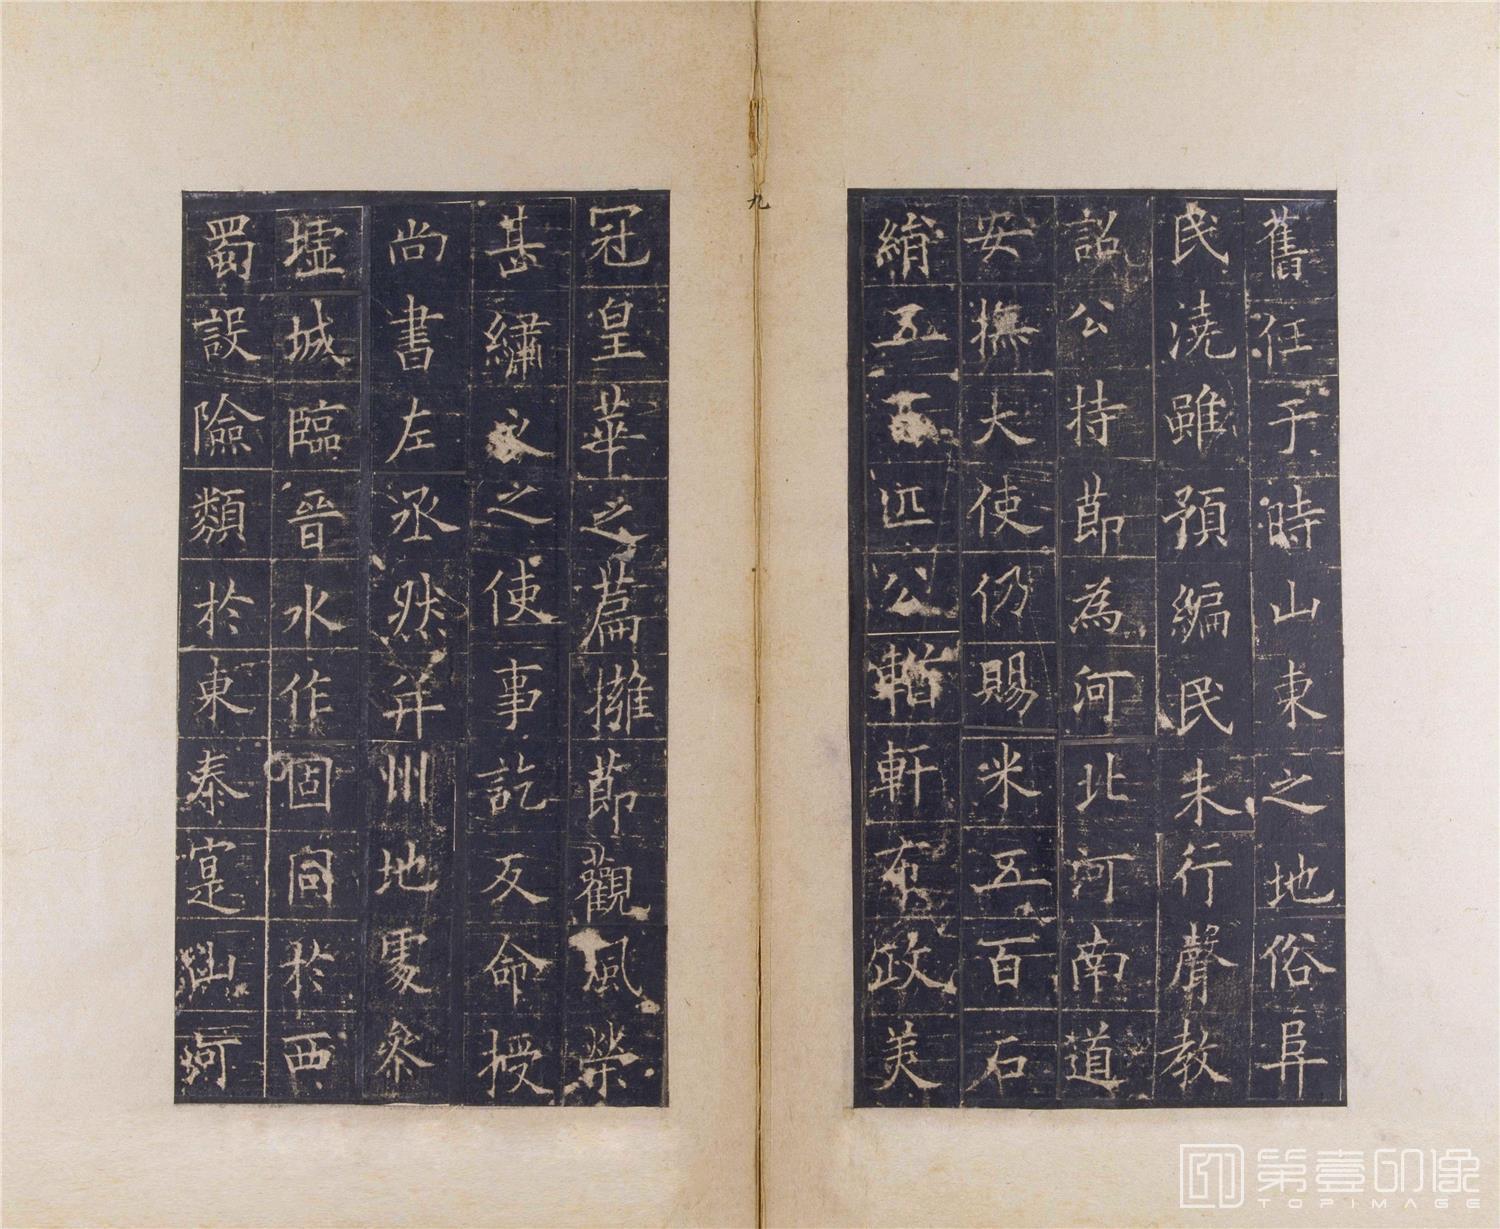 舊任于時山東之地俗阜
民澆雖預編民未行聲教
詔公持節為河北河南道
安撫大使仍賜米五百石
絹五百匹公輶軒布政美
冠皇華之篇擁節觀風榮
甚繡衣之使事訖反命授
尚書左丞然并州地處參
墟城臨晉水作固同於西
蜀設險類於東秦寔山河
九
第壹印像
TOPIMAGE